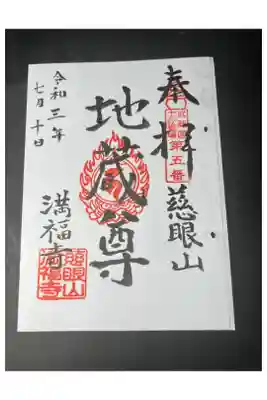 奉拝
第五番
慈眼山
地蔵尊
令和三年
七月十日
満福寺
慈眼山
満福寺